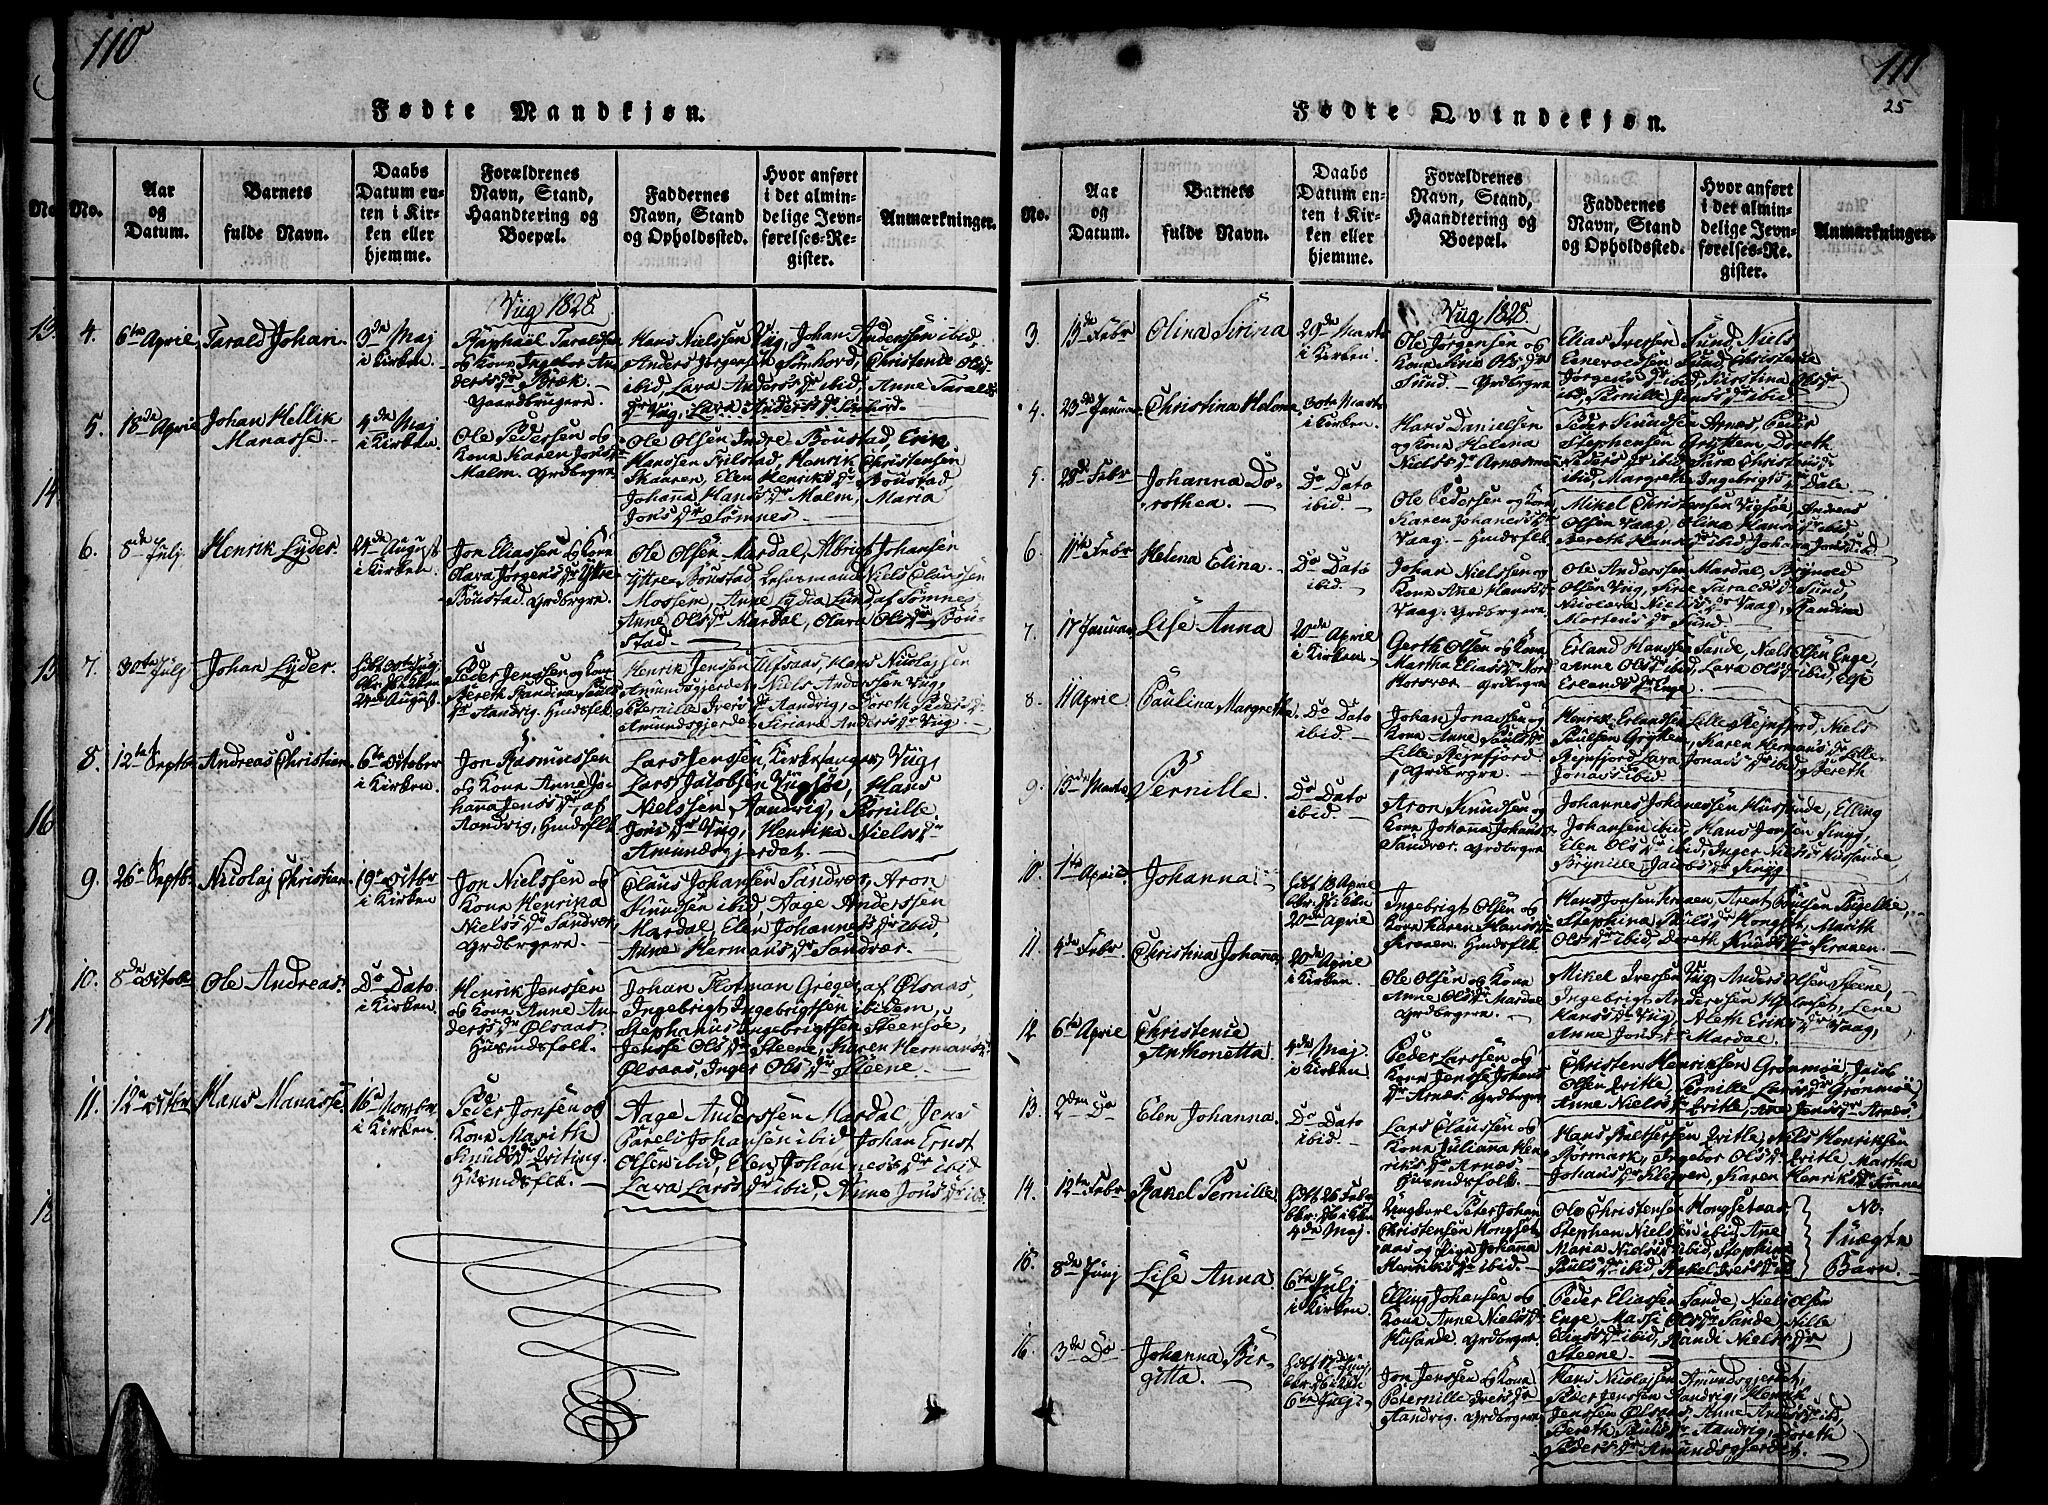 110
Fødte Mandkjøn.
No.
Aar
og
Datum.
Barnets
fulde Navn.
Daabs
Datum en-
ten i Kir-
ken eller
hjemme.
Forældrenes
Navn, Stand,
Haandtering og
Boepæl.
Faddernes
Navn, Stand
og Opholdssted.
Hvor anført
i det almin-
delige Jevn-
førelses-Re-
gister.
Anmærkninger.
Viig 1828
4. 6te April
Tarald Johan.
3de Maj
i Kirken.
Raphael Taraldsen
og Kone Ingebor An-
ders Dr Bræk.
Gaardbrugere.
Hans Nielssen Viig, Johan Anderssen ibid,
Anders Jørgensen Sømhord, Christence Ols Dr
ibid, Lava Anders Dr ibid, Anne Taralds
Dr Viig, Lava Anders Dr Sømhord.
5. 18de April
Johan Hellik
Manasse.
4de Maj
i Kirken.
Ole Pederssen og
Kone Karen Jons Dr
Malm. Grdbrgre.
Ole Olsen Indre Boustad, Erik
Hanssen Tilstad, Henrik Christensen
Skaaren, Elen Henriks Dr Boustad
Johanna Hans Dr Malm, Maria
Jons Dr Sømnes.
6. 8de Julj
Henrik Lyder.
24de August
i Kirken.
Jon Eliassen og Kone
Olava Jørgens Dr Yttre
Boustad. Grdbrgre.
Ole Olsen Mardal, Albrigt Johansen
Yttre Boustad, Lehnsmand Niels Claussen
Mossem, Anne Lydia Lund af Sømnes
Anne Ols Dr Mardal, Olava Ols Dr Bou-
stad.
7. 30te Julj
Johan Lyder.
24de August.
Peder Jenssen og Kone
Bereth Randina Pauls
Dr Aandvig. Huusfolk
Henrik Jensen Ulfsaas, Hans Nicolajsen
Amundsgjerdet, Niels Anderssen Viig,
Pernille Ivers Dr Aandvig, Doreth Peders Dr
Amundsgjerdet, Siriana Anders Dr Viig
8. 12te Septbr
Andreas Christian
6te October
i Kirken.
Jon Rasmussen
og Kone Anne Jo-
hanna Jens Dr af
Aandvig, Huusfolk
Lars Jenssen, Kirkesanger, Viig,
Lars Jacobsen Vigsøe, Hans
Nielssen, Aandvig, Pernille
Jons Dr Viig, Henrika Niels Dr
Amundsgjerdet.
9. 26 Septbr
Nicolaj Christian
19 Octbr
i Kirken
Jon Nielssen og
Kone Henrika
Niels Dr Sandvær,
Grdbrgere.
Claus Johansen Sandvær, Aron
Knudsen ibid, Aage Anderssen
Mardal, Elen Johannes Dr ibid,
Anne Hermans Dr Sandvær.
10. 8de October
Ole Andreas.
Do Dato
i Kirken.
Henrik Jenssen
og Kone Anne An-
ders Dr Ølsaas.
Huusmdsfolk.
Johan Flotman Greger af Ølsaas,
Ingebrigt Ingebrigtsen ibidem,
Stephanus Ingebrigtsen Steensøe,
Jensse Ols Dr Steene, Karen Hermans Dr
Ølsaas, Inger Ols Dr Steene.
11. 12te Octbr
Hans Manasse.
16de Novbr
i Kirken.
Peder Jonsen og
Kone Marith
Knuds Dr Qviting.
Huusmdsfolk.
Aage Anderssen Mardal, Jens
Pareli Johansen ibid, Johan Ernst
Olsen ibid, Elen Johannes Dr ibid
Lava Lars Dr ibid, Anne Jons Dr ibid.
13.
14
15
16
17
18
111
25
Fødte Qvindekjøn.
No.
Aar
og
Datum.
Barnets
fulde Navn.
Daabs
Datum en-
ten i Kir-
ken eller
hjemme.
Forældrenes
Navn, Stand,
Haandtering og
Boepæl.
Faddernes
Navn, Stand
og Opholdssted.
Hvor anført
i det almin-
delige Jevn-
førelses-Re-
gister.
Anmærkninger.
Viig 1828
3. 13de Febr
Olina Sirina
29de Marts
i Kirken.
Ole Jørgensen og
Kone Sirie Ols Dr
Sund. Grdbrgre.
Elias Iverssen Sund, Niels
Enevoldsen Sund, Christence
Jørgens Dr ibid, Kirstina Ols Dr
ibid, Pernille Jens Dr ibid
4. 23de Januar
Christina Helena
30te Marts
i Kirken.
Hans Danielsen
og Kone Helena
Niels Dr Arnesman
Peder Knudssen Arnes, Peder
Stephensen Grøttem, Doreth
Peders Dr ibid, Sara Christens Dr
ibid, Margrethe Ingebrigts Dr Dale
5. 28de Febr
Johanna Do-
rothea.
Do Dato
ibid.
Ole Pederssen og Kone
Karen Johannes Dr
Vaag. Husmdsflk
Mikel Christensen Vigsøe, Andreas
Olsen Vaag, Olina Hans Dr ibid,
Bereth Hans Dr ibid, Johanna Jons Dr ibid
6. 11te Febr
Helena Elina.
Do Dato
ibid.
Johan Nielssen og
Kone Ane Hans Dr
Vaag. Grdbrgere.
Ole Anderssen Mardal, Brynold
Olsen Viig, Sirie Taralds Dr Sund,
Nicolava Niels Dr Vaag, Randina
Mortens Dr Sund.
7. 17 Januar
Lise Anna
20de April
i Kirken.
Gerth Olsen og Kone
Martha Elias Dr Nord
Horsvær. Grdbrgere.
Erland Hanssen Sande, Niels Olsen Enge,
Anne Ols Dr ibid, Lava Ols Dr ibid, Else
Erlands Dr Enge.
8. 11 April
Paulina Margretha.
Do Dato
ibid.
Johan Jonassen og
Kone Anne Pauls Dr
Lille Reinfjord
Grdbrgere.
Henrik Erlandsen Lille Reinfjord, Niels
Paulsen Grøttem, Karen Hermans Dr Lille-
Reinfjord Lava Jonas Dr ibid, Bereth
Jonas Dr ibid
9. 15de Marts
Pernille.
Do Dato
ibid.
Aron Knudsen og
Kone Johanna Johans Dr
Sandvær. Grdbrgere
Johannes Johanessen Huusande, Elling
Johansen ibid, Hans Jonsen Finvig,
Elen Ols Dr ibid, Inger Niels Dr Huusande,
Brynille Jacobs Dr Finvig
10. 1te April
Johanna
20de April
Ingebrigt Olsen og
Kone Karen Hans Dr
Kranen. Husmdsflk.
Hans Jonsen Kranen, Arent Paulsen
Stephina Pauls Dr Kongset, Marith
Ols Dr ibid, Dereth Knuds Dr Kranen.
11. 4de Febr
Christina Johanna
20de April
i Kirken.
Ole Olsen og Kone
Anne Ols Dr Mardal
Grdbrgere.
Mikel Iverssen Viig, Anders Olsen Steene,
Ingebrigt Anderssen, Lene
Hans Dr Viig, Aleth Eriks Dr Vaag,
Anne Jons Dr Mardal.
12. 6te April
Christence
Anthonetta.
4de Maj.
i Kirken.
Peder Larssen og
Kone Jensse Johans
Dr Arnes. Grdbrgere
Christen Henriksen Grønmøe, Jacob
Olsen Qvitle, Pernille Lars Dr Grønmøe
Anne Niels Dr Qvitle, Ane Jens Dr Arnes.
13. 2den Do
Elen Johanna.
Do Dato
ibid.
Lars Claussen og
Kone Julianna Hen-
riks Dr Arnes.
Huusmdsfolk.
Hans Balthersen Qvitle, Niels Henriksen
Børmark, Ingebor Ols Dr Qvitle, Martha
Johans Dr Kleven, Karen Henriks Dr Sømnes
14. 12te Febr
Rakel Pernille.
4de Maj.
Ungkarl Peter Johan
Christensen Kongset-
aas og Pige Johanna
Henriks Dr ibid.
Ole Christensen Kongsetaas
Stephen Nielssen ibid, Ane
Maria Niels Dr ibid, Stephina
Pauls Dr ibid, Rakel Ivers Dr ibid
No:
1 uægte
Barn.
15. 8de Junj
Lise Anna
6te Julj
i Kirken.
Elling Johansen og
Kone Anne Niels Dr
Husande. Grdbrgre
Peder Eliassen Sande, Niels Olsen
Enge, Masse Ols Dr Sande, Nille
Elias Dr ibid, Randi Niels Dr
Steene.
16. 3de Do
Johanna Bir-
gitta.
6te Julj.
Jon Jenssen og Kone
Peternille Ivers Dr
Aandvig. Grdbrgere
Hans Nicolajsen Amundsgjerdet,
Peder Jenssen Aandvig, Henrik
Jenssen Ølsaas, Anne Anders Dr ibid,
Bereth Pauls Dr Aandvig, Doreth
Peders Dr Amundsgjerdet.